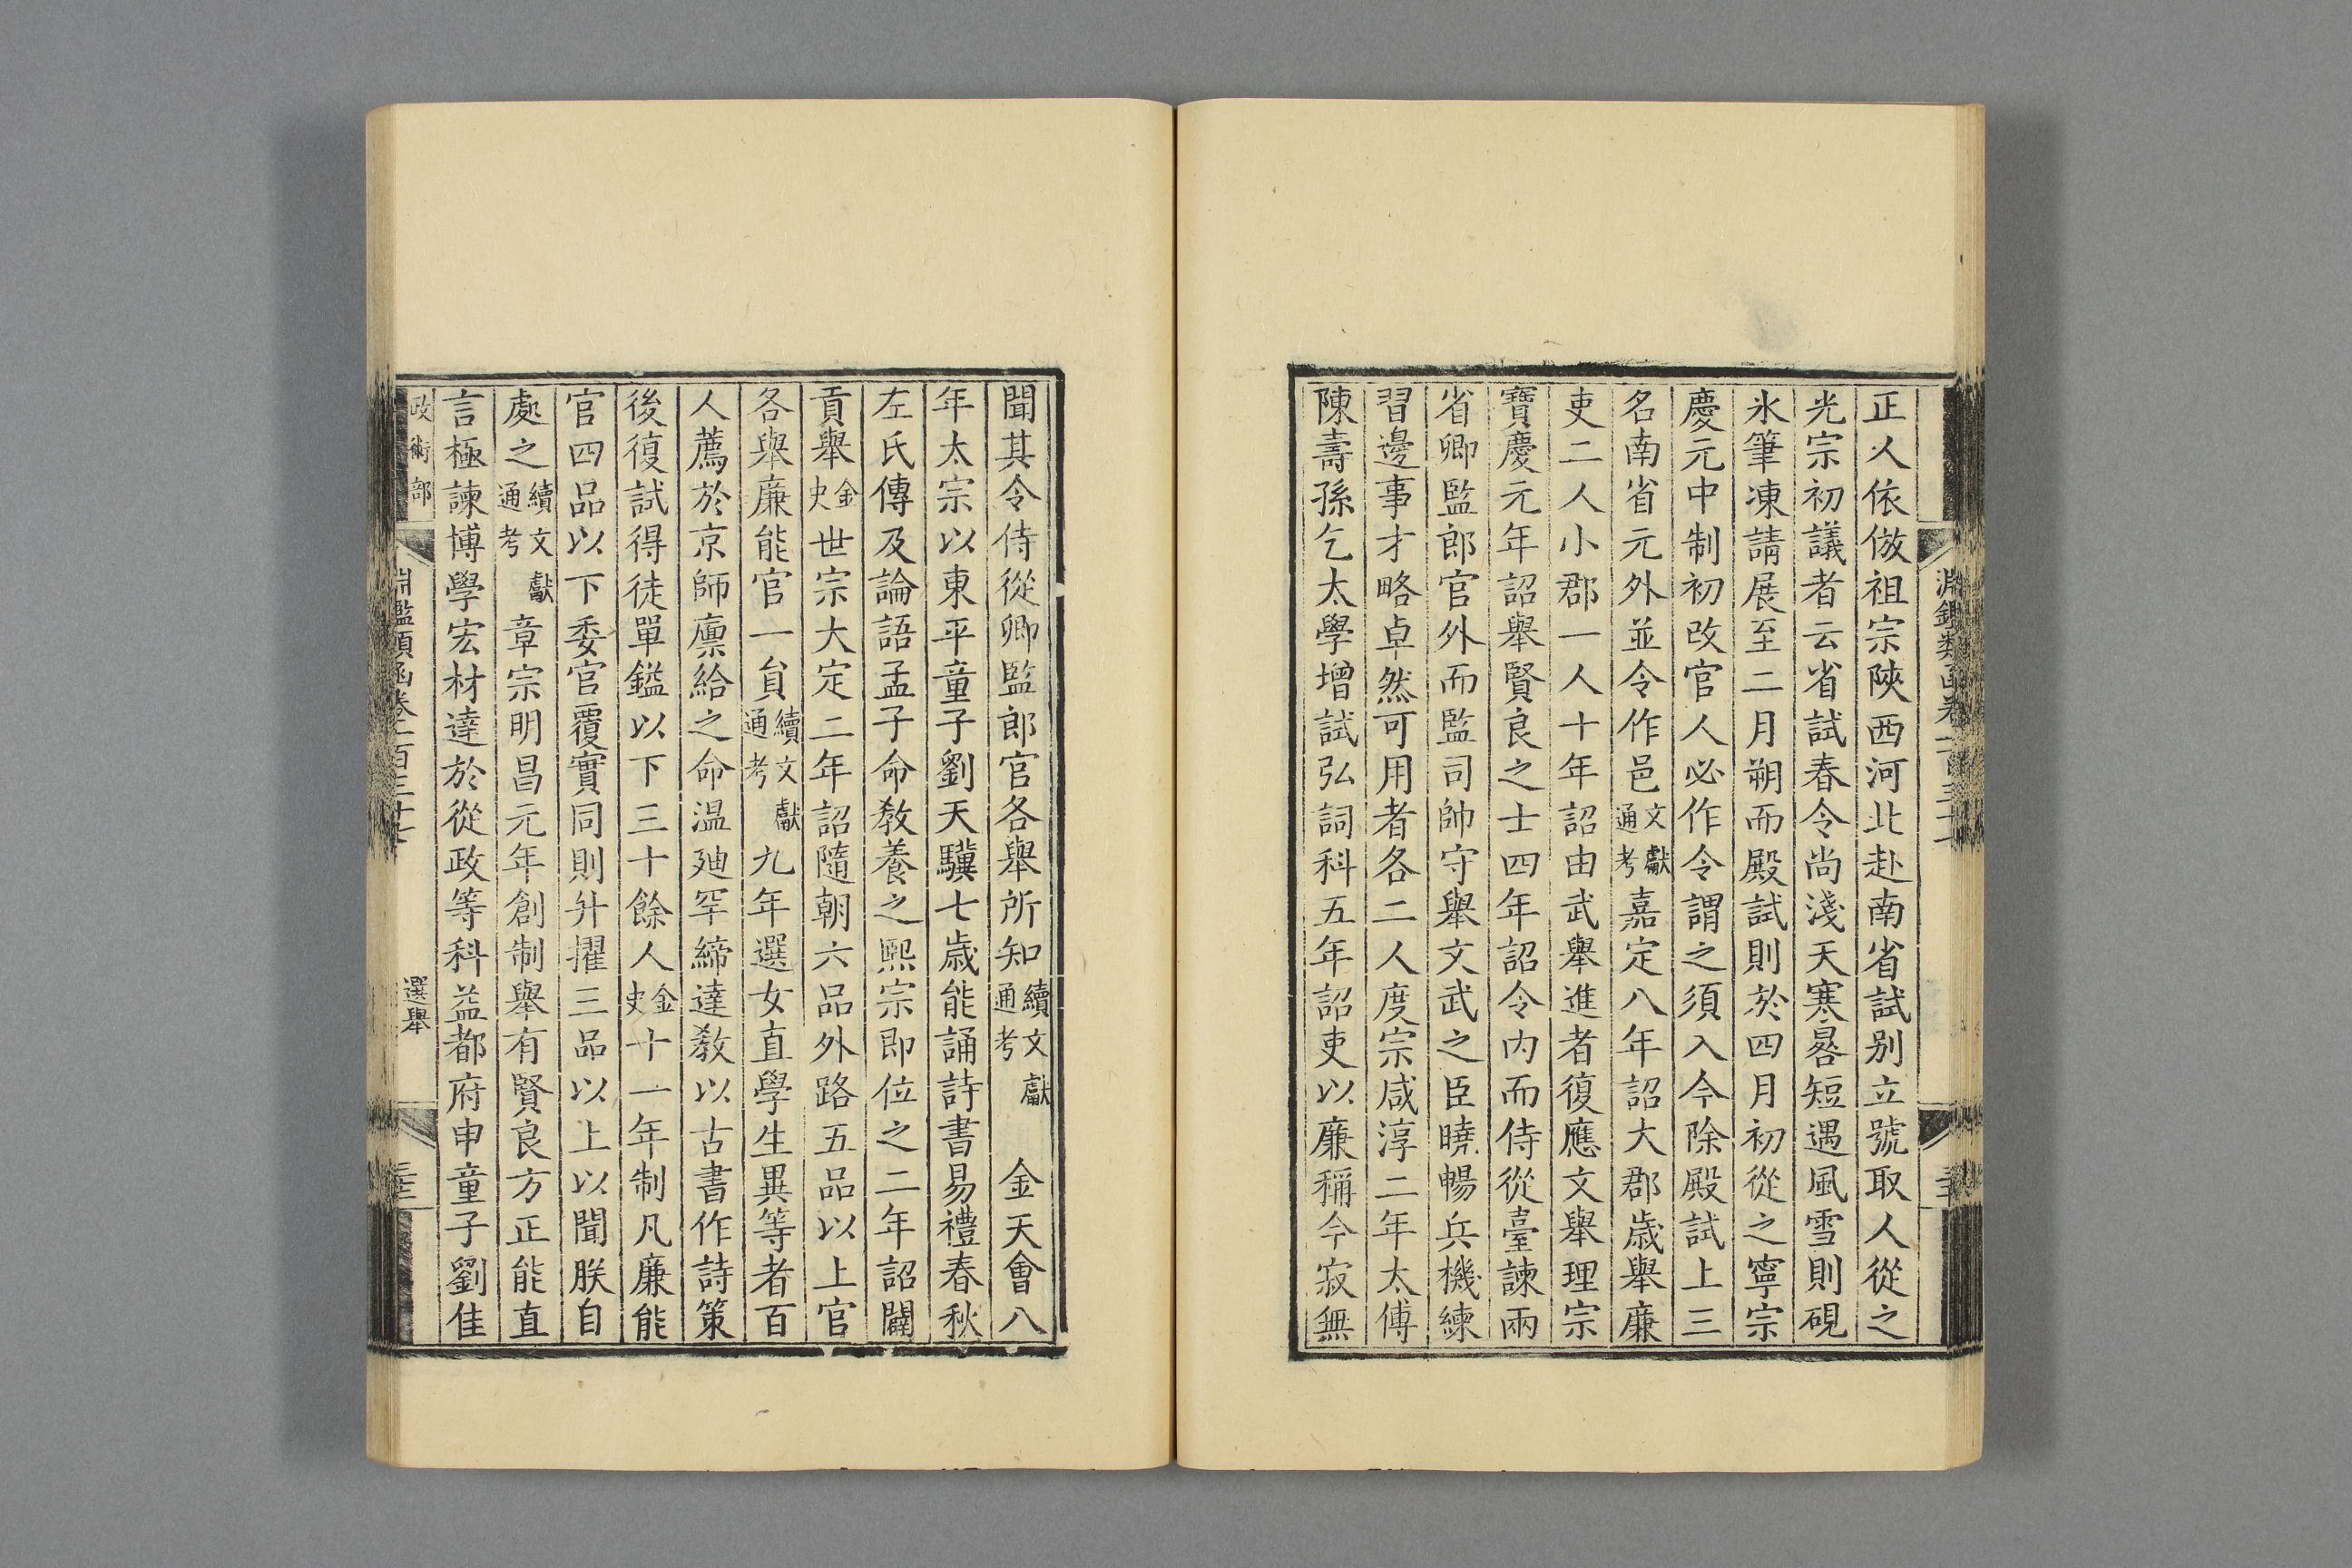 正人依倣祖宗陝西河北赴南省試别立號取人從之
光宗初議者云省試春令尚淺天寒晷短遇風雪則硯
氷筆凍請展至二月朔而殿試則於四月初從之寧宗
慶元中制初改官人必作令謂之須入今除殿試上三
名南省元外並令作邑文獻通考嘉定八年詔大郡歲舉廉
吏二人小郡一人十年詔由武舉進者復應文舉理宗
寶慶元年詔舉賢良之士四年詔令内而侍從臺諫兩
省卿監郎官外而監司帥守舉文武之臣曉暢兵機練
習邊事才略卓然可用者各二人度宗咸淳二年太傅
陳壽孫乞太學增試弘詞科五年詔吏以廉稱今寂無
聞其令侍從卿監郎官各舉所知續文獻通考 金天會八
年太宗以東平童子劉天驥七歲能誦詩書易禮春秋
左氏傳及論語孟子命敎養之熙宗即位之二年詔闢
貢舉金史世宗大定二年詔隨朝六品外路五品以上官
各舉廉能官一員續文獻通考九年選女直學生異等者百
人薦於京師廪給之命温廸罕締達敎以古書作詩策
後復試得徒單鎰以下三十餘人金史十一年制凡廉能
官四品以下委官覆實同則升擢三品以上以聞朕自
處之續文獻通考章宗明昌元年創制舉有賢良方正能直
言極諫博學宏材達於從政等科益都府申童子劉住
政術部
淵鑑類函卷一百三十七
選舉